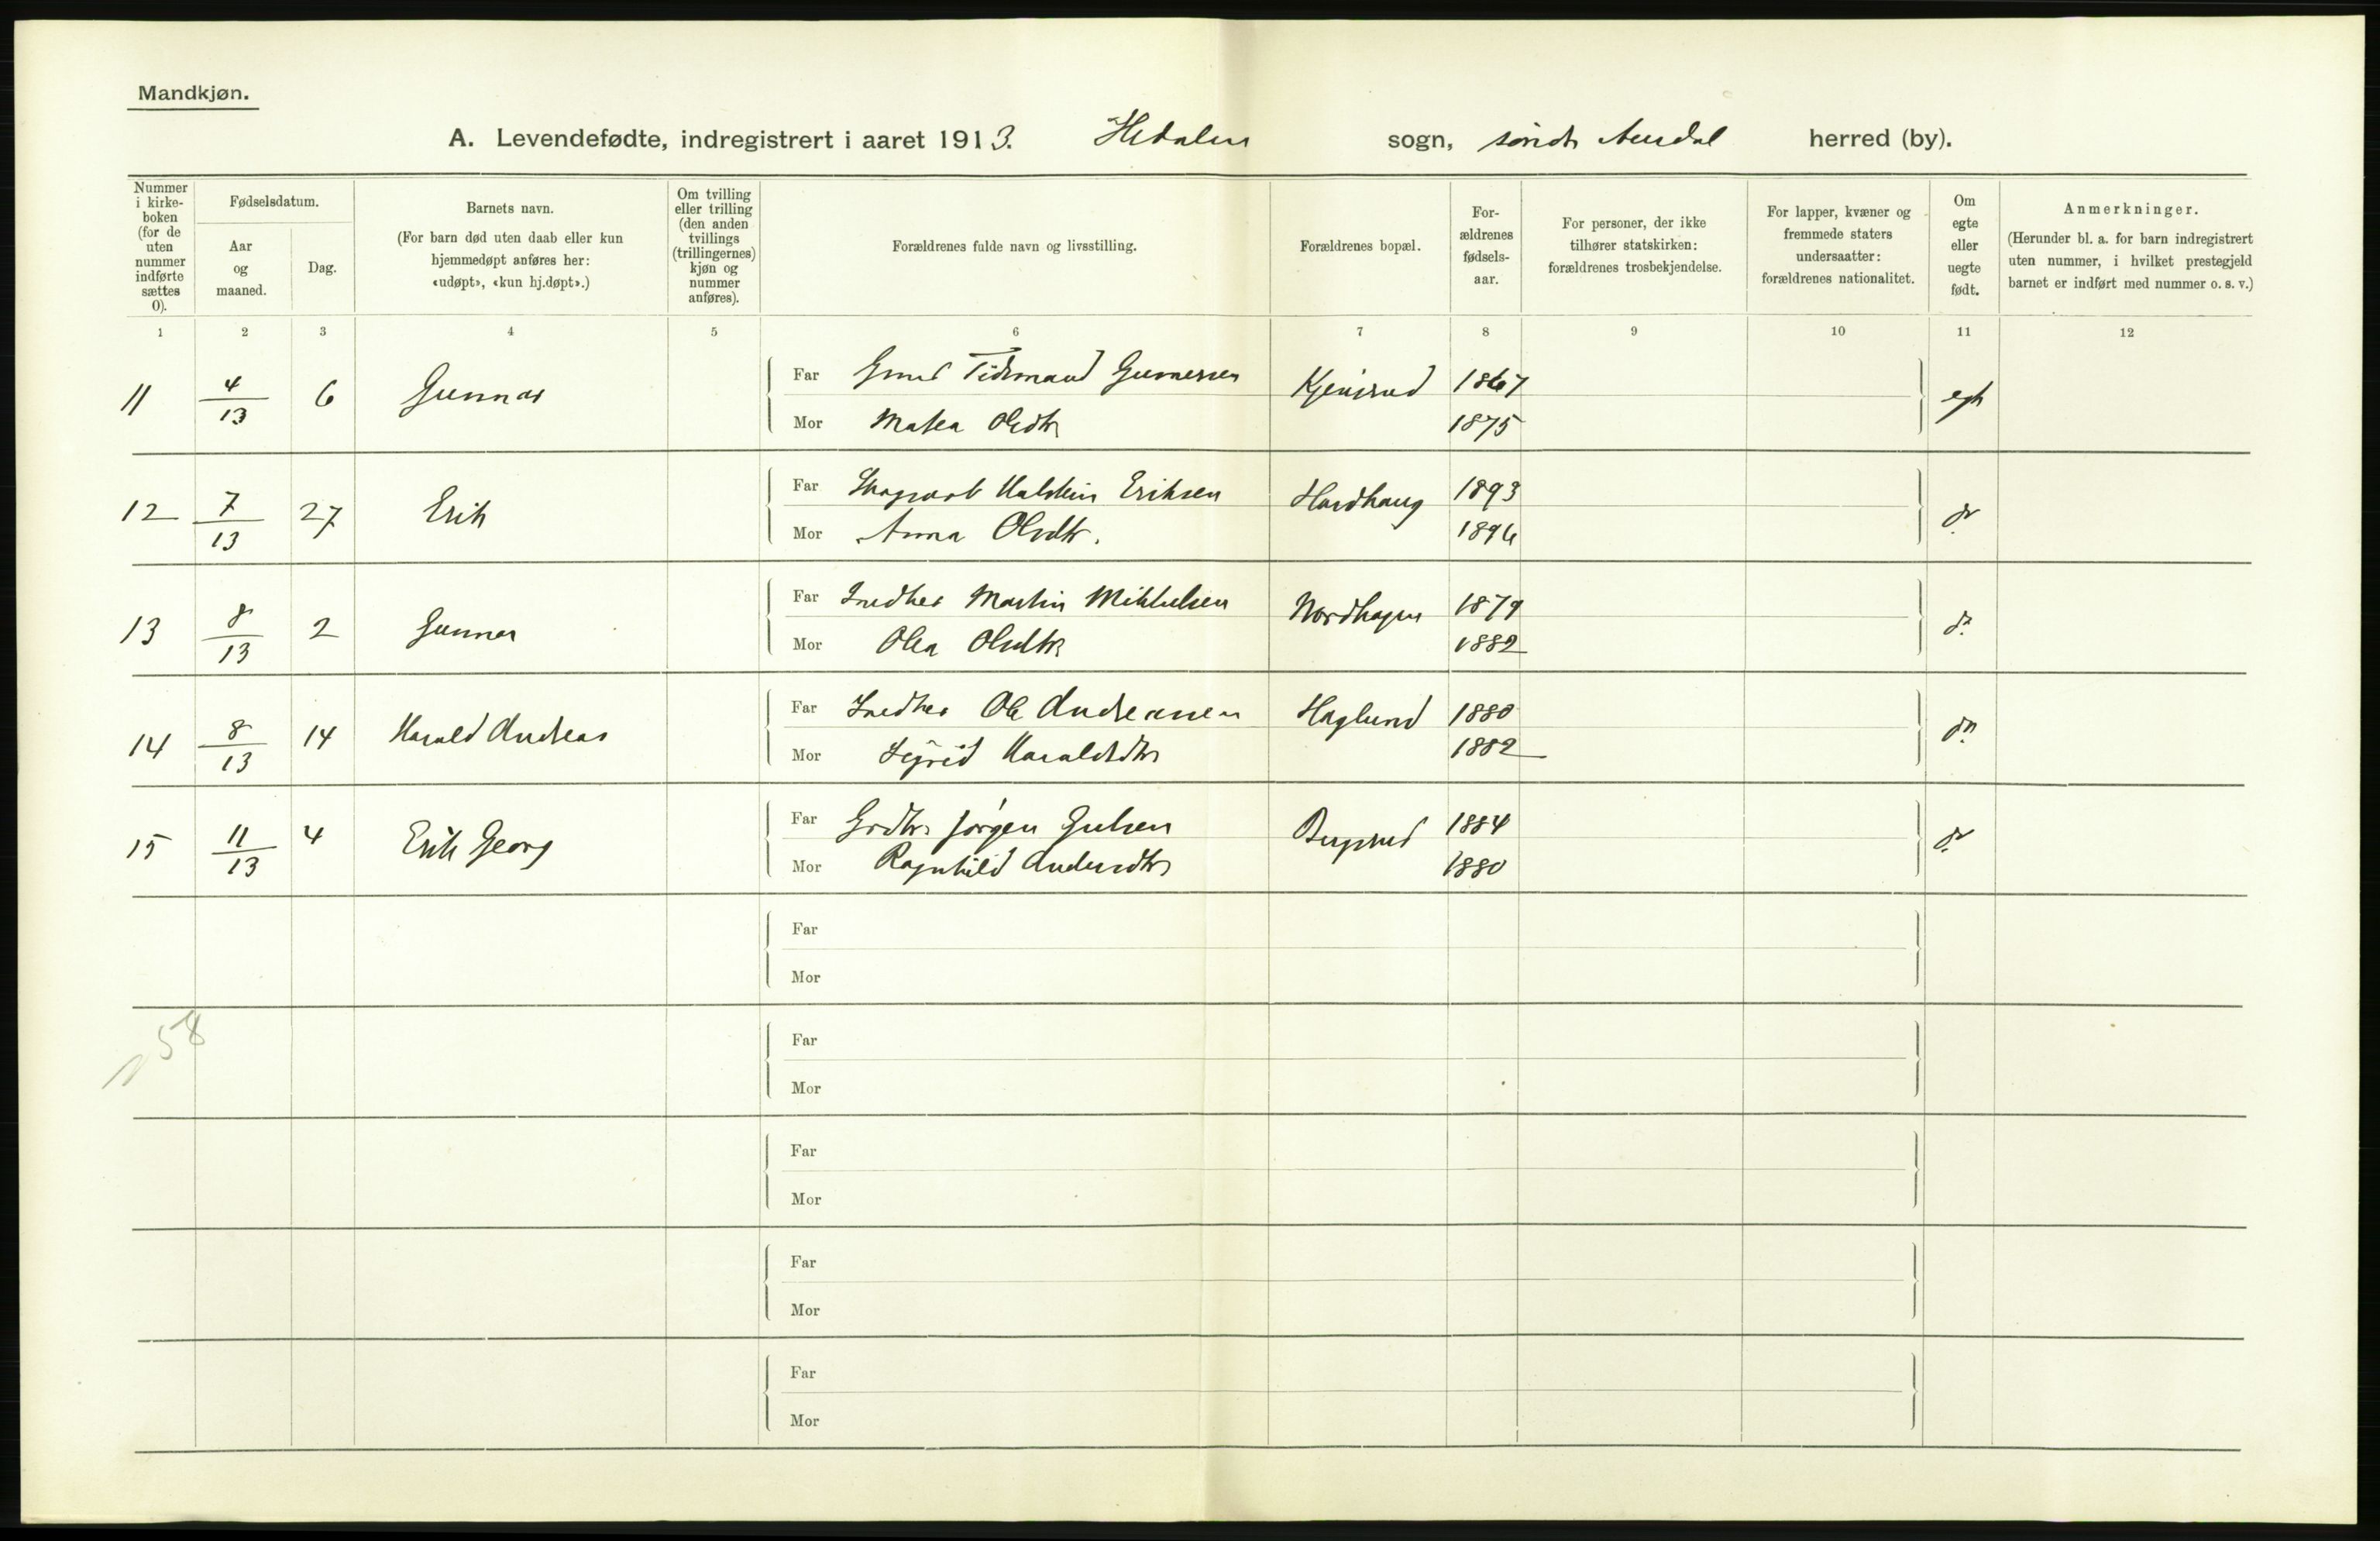 Mandkjøn.
A. Levendefødte, indregistrert i aaret 1913. Hedalen sogn, søndr Aurdal herred (by).
Nummer i kirke- boken (for de uten nummer indførte sættes 0).
Fødselsdatum.
Aar og maaned.
Dag.
Barnets navn.
(For barn død uten daab eller kun
hjemmedøpt anføres her:
«udøpt», «kun hj.døpt».)
Om tvilling
eller trilling
(den anden
tvillings
(trillingernes)
kjøn og
nummer
anføres).
Forældrenes fulde navn og livsstilling.
Forældrenes bopæl.
For-
ældrenes
fødsels-
aar.
For personer, der ikke
tilhører statskirken:
forældrenes trosbekjendelse.
For lapper, kvæner og
fremmede staters
undersaatter:
forældrenes nationalitet.
Om
egte
eller
uegte
født.
Anmerkninger.
(Herunder bl. a. for barn indregistrert
uten nummer, i hvilket prestegjeld
barnet er indført med nummer o. s. v.)
1 2 3 4 5 6 7 8 9 10 11 12
11 4/13 6 Gunnar
Far Tidemand Gunnersen 1867
Mor Mathea Olsdtr 1875
12 7/13 27 Erik
Far Halstein Eriksen Hardhaug 1893
Mor Anna Olsdtr. 1896
do
13 8/13 2 Gunnar
Far Snedker Martin Mikkelsen Nordhagen 1879
Mor Olea Olsdtr 1882
do
14 8/13 14 Harald Andreas
Far Snedker Ole Andreassen Haglund 1880
Mor Sigrid Haraldsdtr 1882
do
15 11/13 4 Erik Georg
Far Grdbr Jørgen Gulsen 1884
Mor Ragnhild Andersdtr 1880
do
Far
Mor
58
Far
Mor
Far
Mor
Far
Mor
Far
Mor